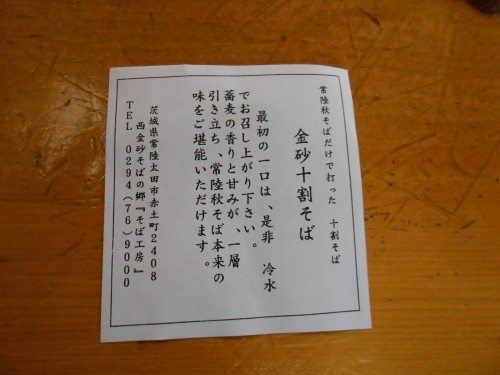 常陸秋そばだけで打った 十割そば
金砂十割そば
最初の一口は、是非 冷水
でお召し上がり下さい。
蕎麦の香りと甘みが、一層
引き立ち、常陸秋そば本来の
味をご堪能いただけます。
茨城県常陸太田市赤土町2408
西金砂そばの郷『そば工房』
TEL 0294(76)9000